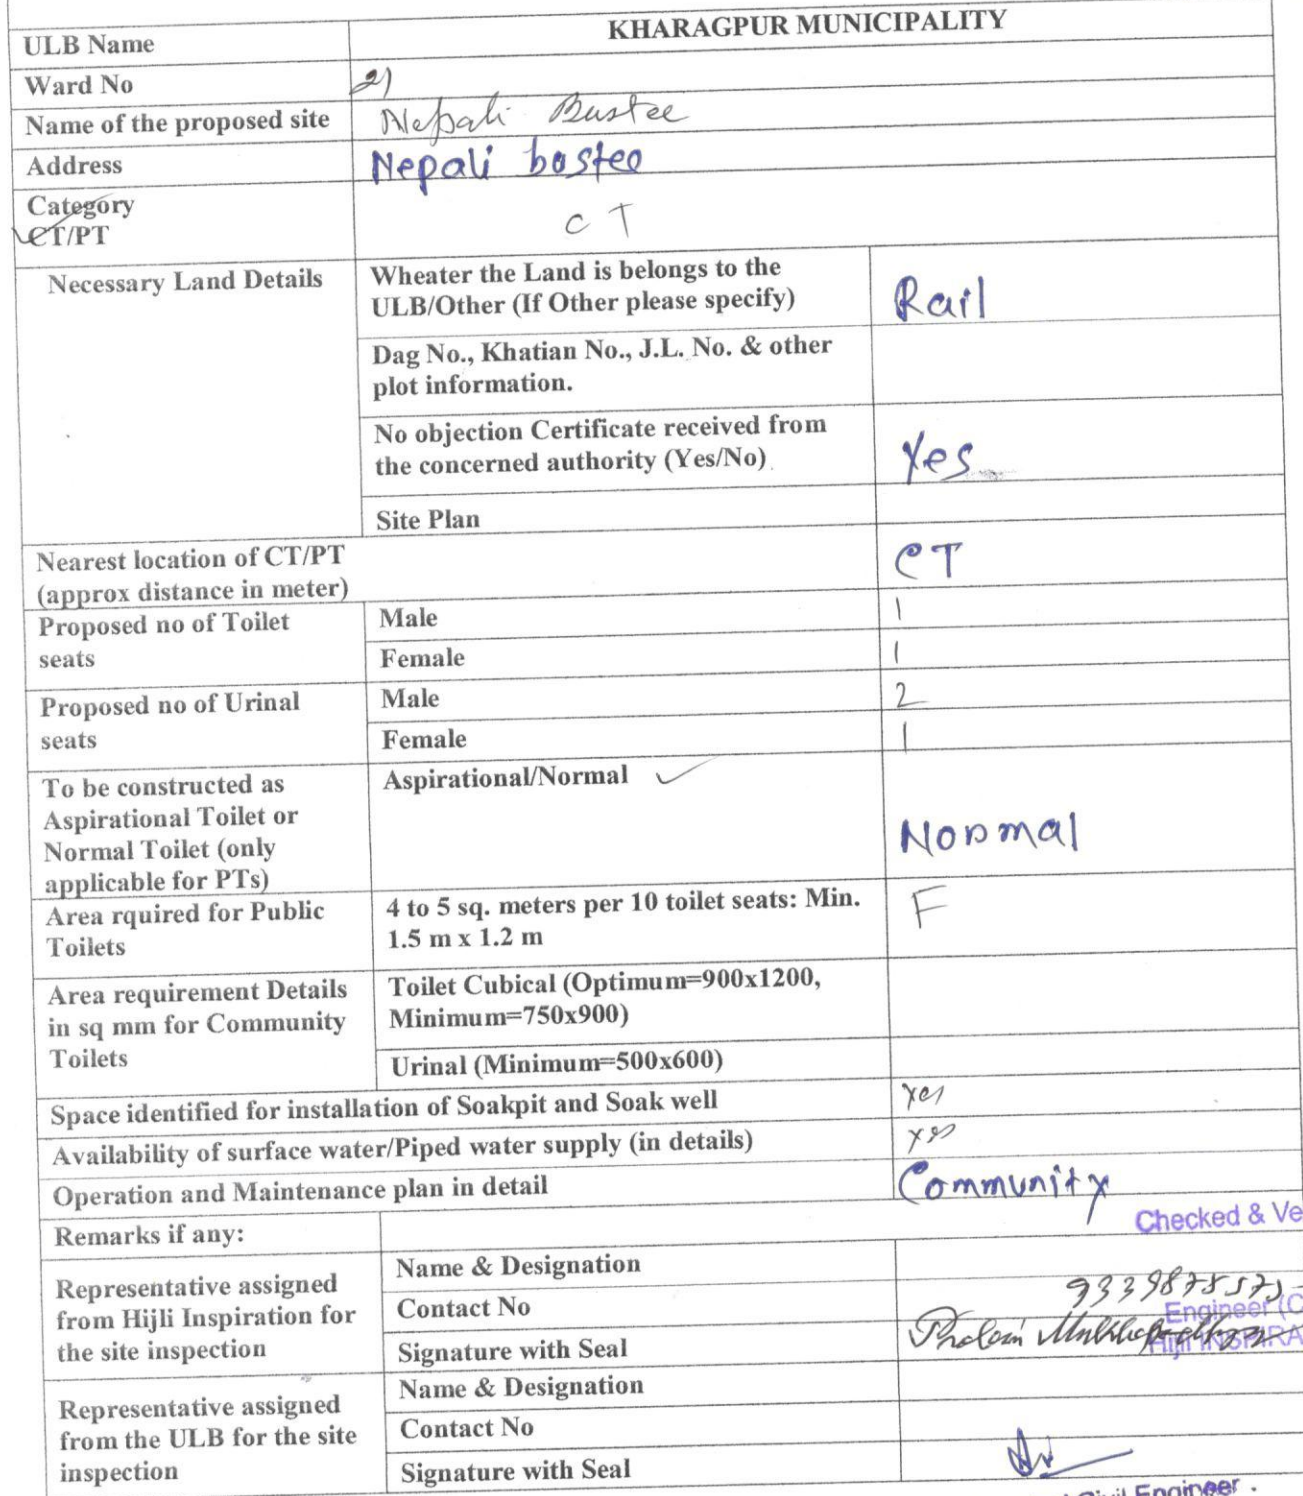 ULB Name KHARAGPUR MUNICIPALITY
Ward No 21
Name of the proposed site Nepali Bustee
Address Nepali bostee
Category
CT/PT CT
Necessary Land Details Wheater the Land is belongs to the
ULB/Other (If Other please specify) Rail
Dag No., Khatian No., J.L. No. & other
plot information.
No objection Certificate received from
the concerned authority (Yes/No) Yes
Site Plan
Nearest location of CT/PT
(approx distance in meter) CT
Proposed no of Toilet
seats
Male 1
Female 1
Proposed no of Urinal
seats
Male 2
Female 1
To be constructed as
Aspirational Toilet or
Normal Toilet (only
applicable for PTs)
Aspirational/Normal ✓
Normal
Area rquired for Public
Toilets
4 to 5 sq. meters per 10 toilet seats: Min.
1.5 m x 1.2 m
F
Area requirement Details
in sq mm for Community
Toilets
Toilet Cubical (Optimum=900x1200,
Minimum=750x900)
Urinal (Minimum=500x600)
Space identified for installation of Soakpit and Soak well yes
Availability of surface water/Piped water supply (in details) yes
Operation and Maintenance plan in detail Community
Remarks if any:
Checked & Ve
Representative assigned
from Hijli Inspiration for
the site inspection
Name & Designation
Contact No
Engineer (C
Signature with Seal
Hijli INSPIRA
Representative assigned
from the ULB for the site
inspection
Name & Designation
Contact No
Signature with Seal
Civil Engineer.